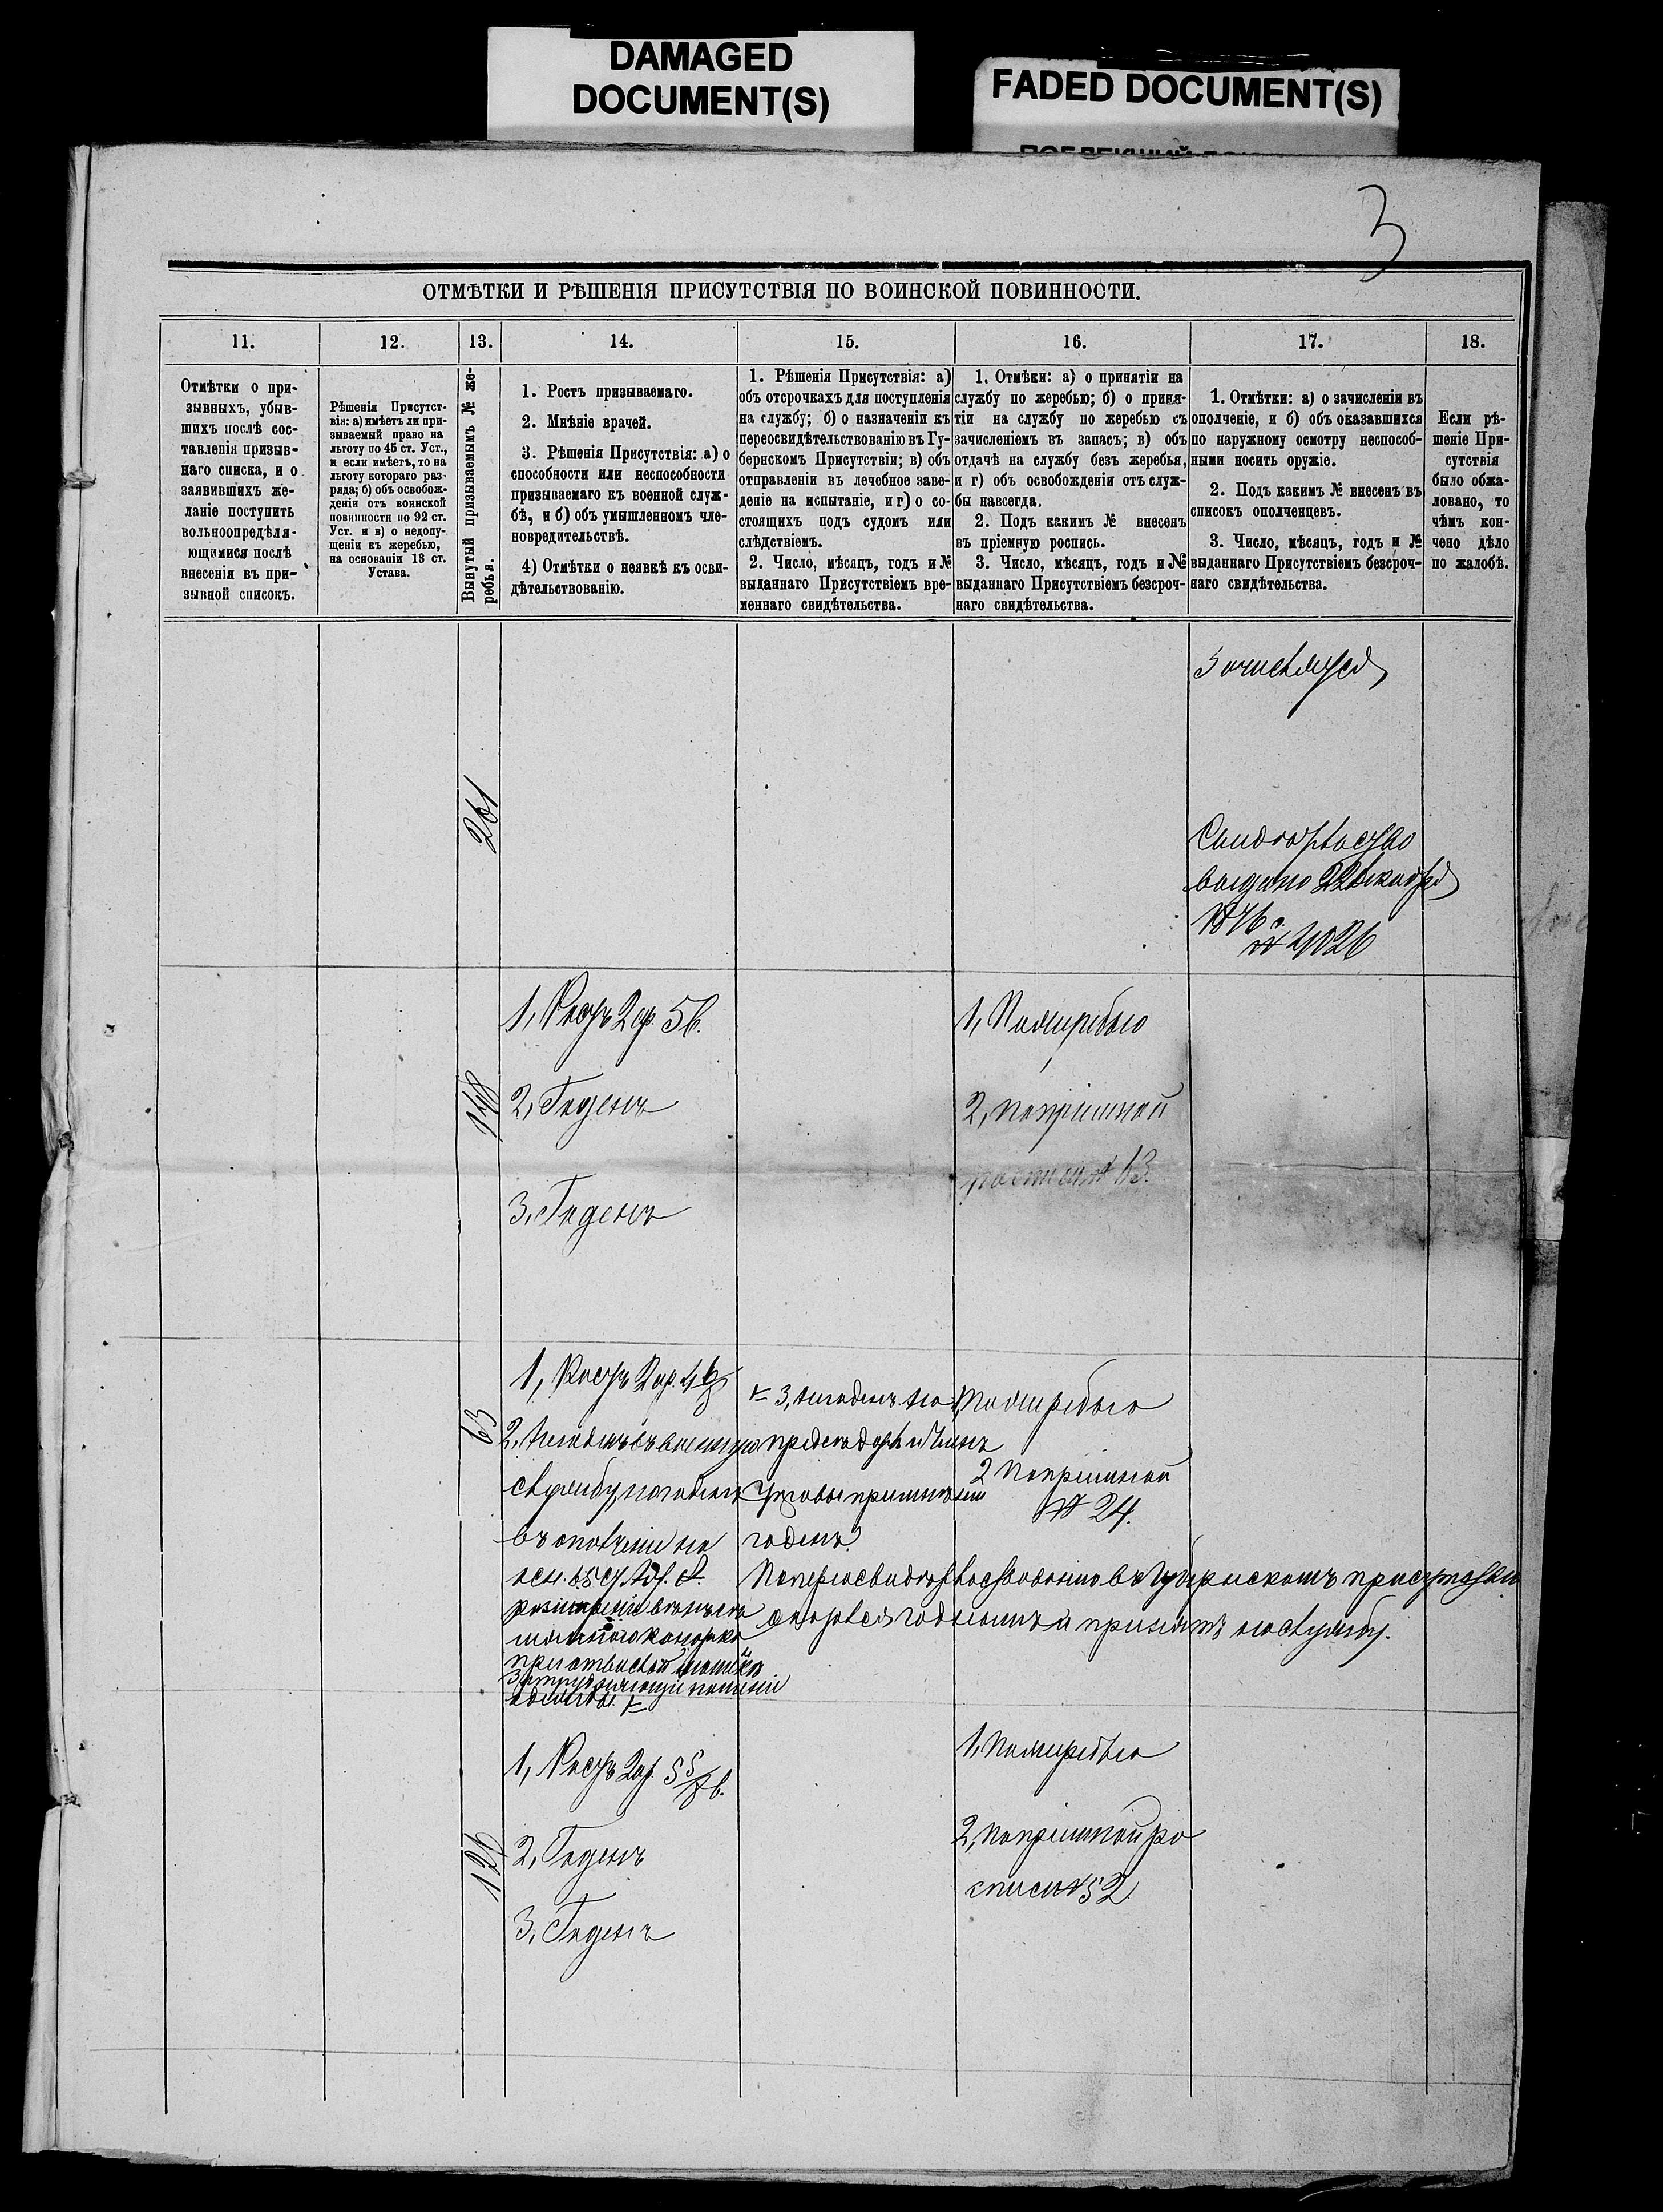 DAMAGED
DOCUMENT(S)
FADED DOCUMENT(S)
3
ОТМѢТКИ И РѢШЕНІЯ ПРИСУТСТВІЯ ПО ВОИНСКОЙ ПОВИННОСТИ.
11.
12.
13.
14.
15.
16.
17.
18.
Отмѣтки о при-
зывныхъ, убыв-
шихъ послѣ сос-
тавленія призыв-
наго списка, и о
заявившихъ же-
ланіе поступить
вольноопредѣля-
ющимися послѣ
внесенія въ при-
зывной списокъ.
Рѣшенія Присутст-
вія: а) имѣетъ ли при-
зываемый право на
льготу по 45 ст. Уст.,
и если имѣетъ, то на
льготу котораго раз-
ряда; б) объ освобож-
деніи отъ воинской
повинности по 92 ст.
Уст. и в) о недопу-
щеніи къ жеребью,
на основаніи 13 ст.
Устава.
Вынутый призываемымъ № же-
ребья.
1. Ростъ призываемаго.
2. Мнѣніе врачей.
3. Рѣшенія Присутствія: а) о
способности или неспособности
призываемаго къ военной служ-
бѣ, и б) объ умышленномъ чле-
новредительствѣ.
4) Отмѣтки о неявкѣ къ осви-
дѣтельствованію.
1. Рѣшенія Присутствія: а)
объ отсрочкахъ для поступленія
на службу; б) о назначеніи къ
переосвидѣтельствованію въ Гу-
бернскомъ Присутствіи; в) объ
отправленіи въ лечебное заве-
деніе на испытаніе, и г) о со-
стоящихъ подъ судомъ или
слѣдствіемъ.
2. Число, мѣсяцъ, годъ и №
выданнаго Присутствіемъ вре-
меннаго свидѣтельства.
1. Отмѣки: а) о принятіи на
службу по жеребью; б) о приня-
тіи на службу по жеребью съ
зачисленіемъ въ запасъ; в) объ
отдачѣ на службу безъ жеребья,
и г) объ освобожденіи отъ служ-
бы навсегда.
2. Подъ какимъ № внесенъ
въ пріемную роспись.
3. Число, мѣсяцъ, годъ и №
выданнаго Присутствіемъ безсроч-
наго свидѣтельства.
1. Отмѣтки: а) о зачисленіи въ
ополченіе, и б) объ оказавшихся
по наружному осмотру неспособ-
ными носить оружіе.
2. Подъ какимъ № внесенъ въ
списокъ ополченцевъ.
3. Число, мѣсяцъ, годъ и №
выданнаго Присутствіемъ безсроч-
наго свидѣтельства.
Если рѣ-
шеніе При-
сутствія
было обжа-
ловано, то
чѣмъ кон-
чено дѣло
по жалобѣ.
Зачисляется
261
Свидѣтельство
выдано 22 декабря
1876 г.
№ 4026
148
1, Ростъ 2 ар. 5 в.
2, Годенъ
3, Годенъ
1, По жеребью
2, по пріемной
росписи № 63.
63
1, Ростъ 2 ар.
2, Негоденъ въ военную
службу, но годенъ
въ ополченіе
ст.
при отвислой мошонкѣ
затрудняющіе ношеніе
одежды.
3, Негоденъ, но
предсѣдатель и Членъ
Управы признали
годенъ
По переосвидѣтельствованію въ Губернскомъ присутствіи
оказался годнымъ и принятъ на службу.
По жеребью
2 По пріемной
№ 24.
126
1, Ростъ 2 ар. 5 5/8 в.
2, Годенъ
3, Годенъ
1, По жеребью
2, по пріемной ро
списи № 52.